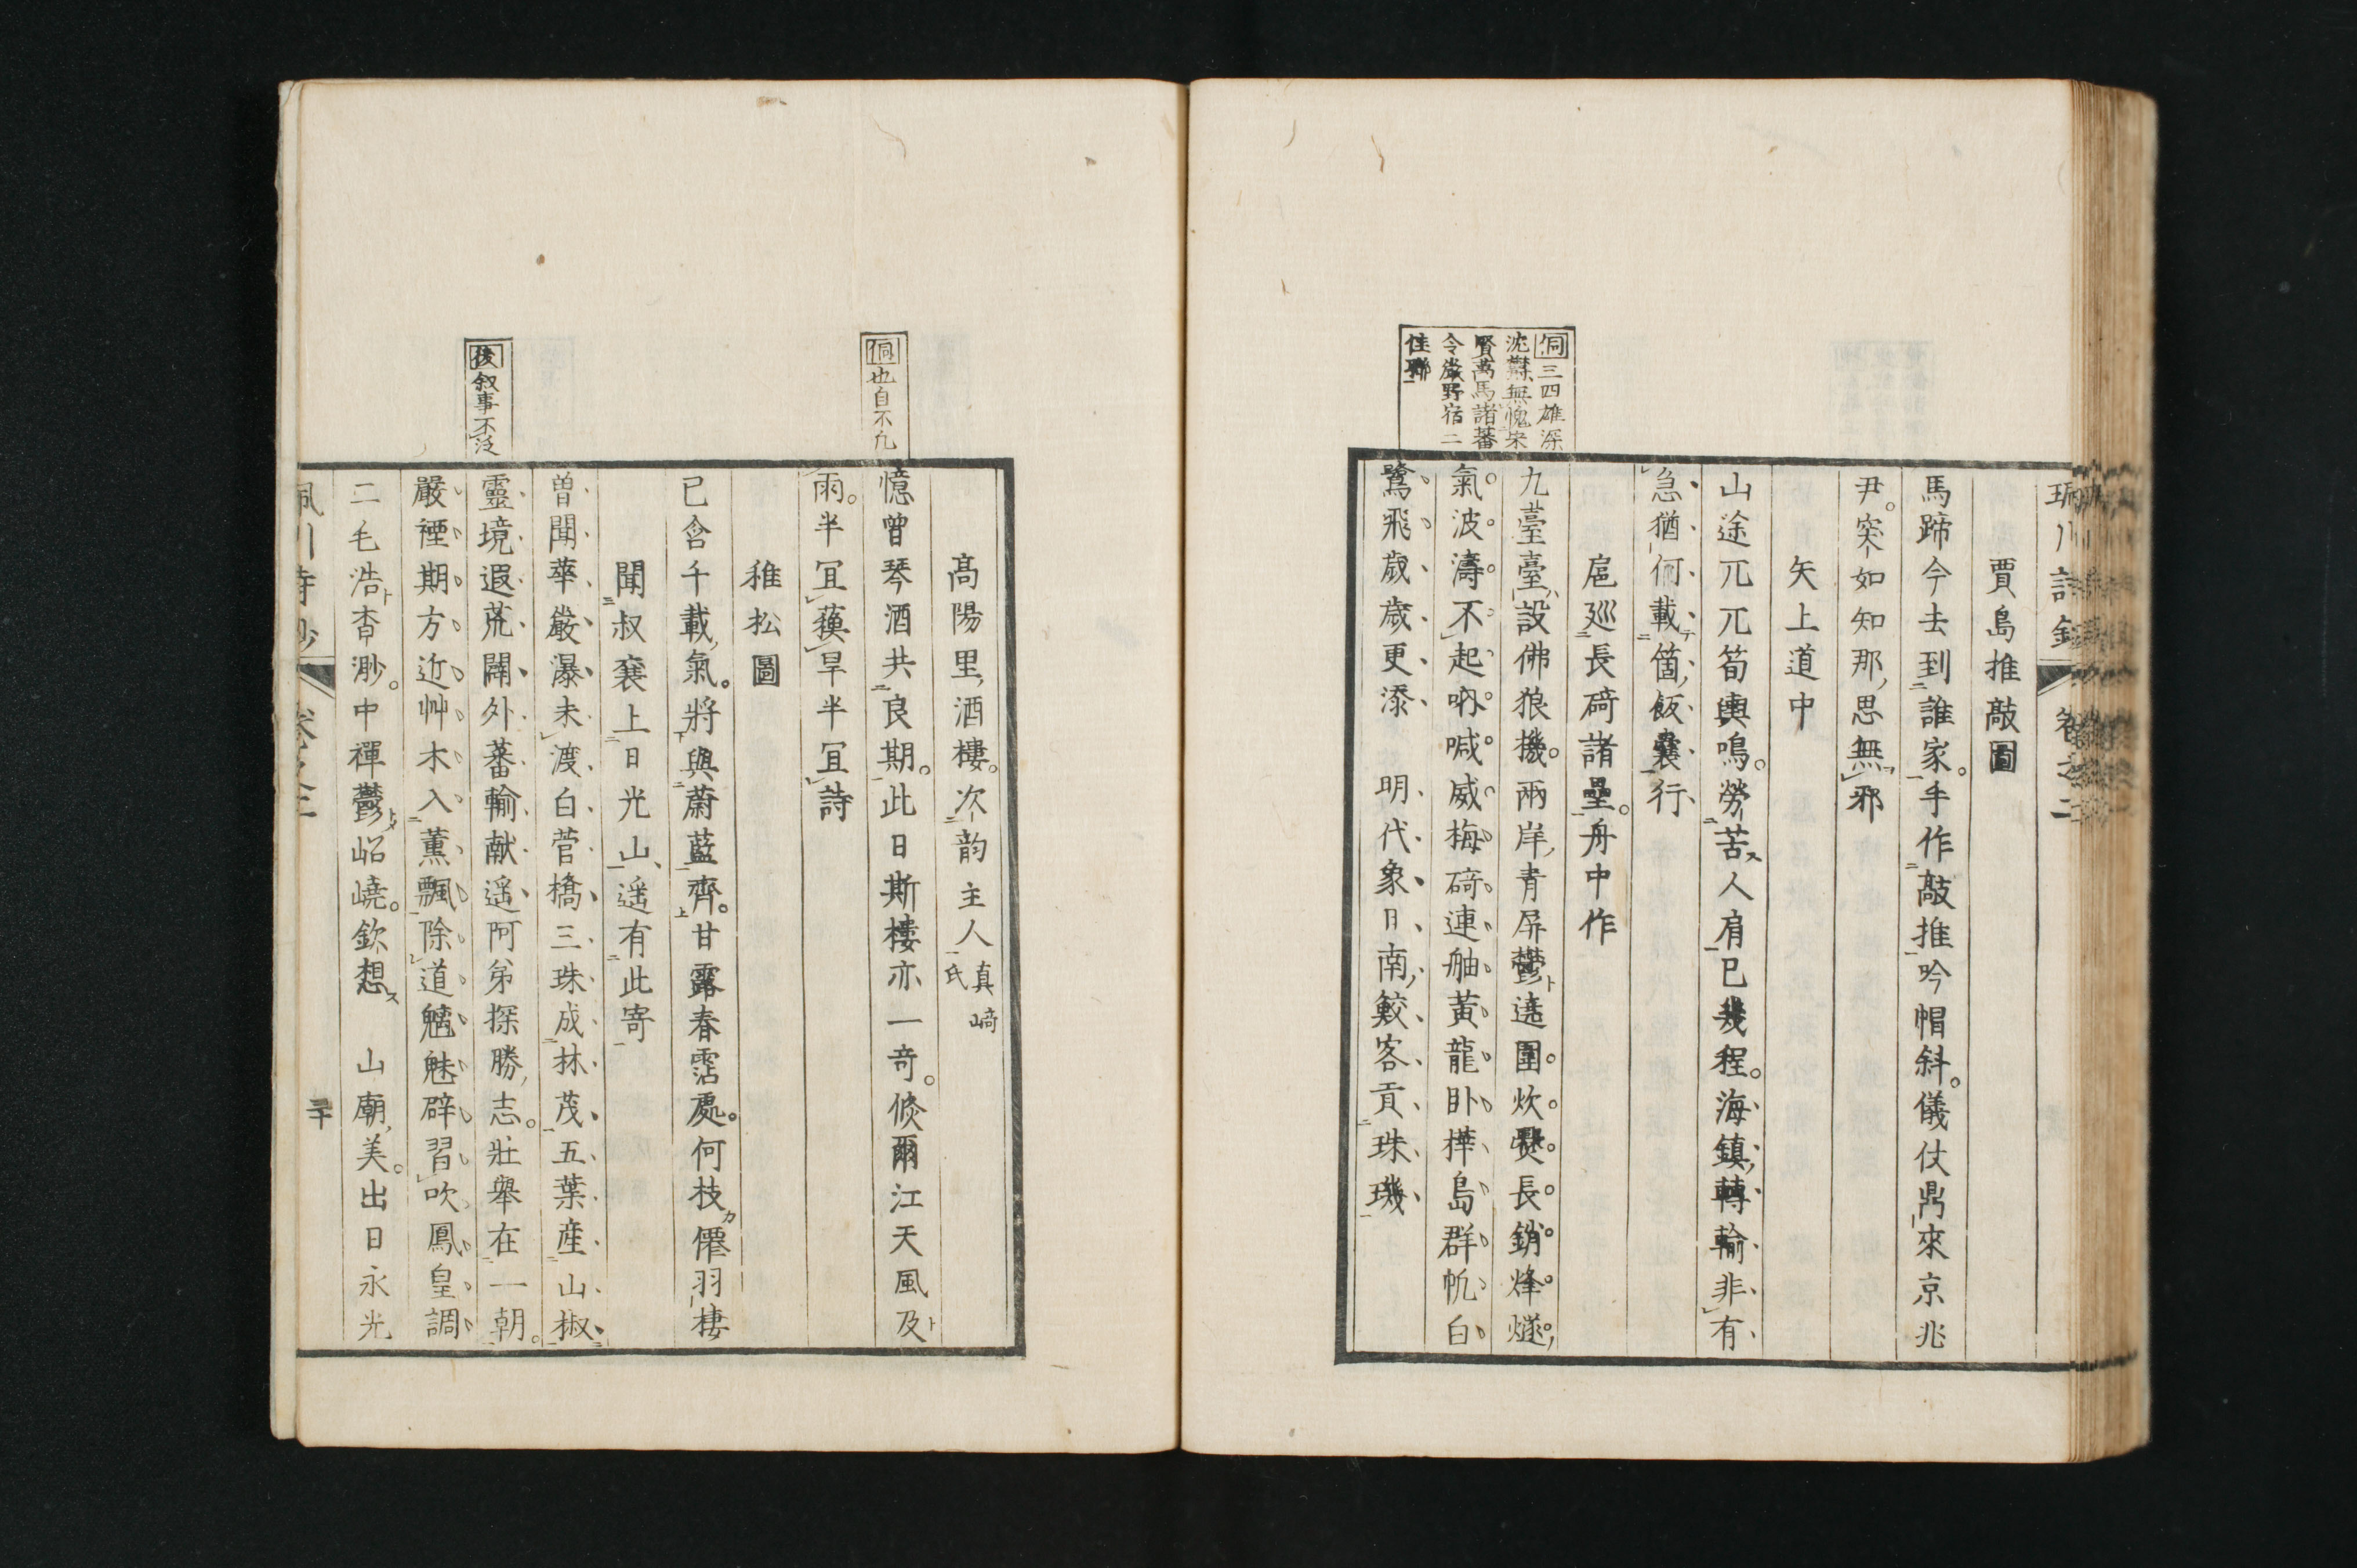 珮川詩鈔 卷之二
賈島推敲圖
馬蹄今去到誰家。手作敲推吟帽斜。儀仗鼎來京兆
尹。突如知那思無邪
矢上道中
山途兀兀筍輿鳴。勞苦人肩已幾程。海鎮轉輸非有
急猶何載箇飯囊行
扈巡長碕諸壘。舟中作
侗三四雄深
沈欝無愧宋
賢萬馬諸蕃
令歳野宿二
佳聯
九臺臺設佛狼機。兩岸青屏鬱遶圍。炊爨長銷烽燧
氣。波濤不起吶喊威。梅碕連舳黃龍臥樺島群帆白
鷺飛歳歳更添 明代象日南鮫客貢珠璣
高陽里酒樓。次韵主人真﨑氏
侗也自不凡
憶曾琴酒共良期。此日斯樓亦一奇。倏爾江天風及
雨。半冝蘋旱半冝詩
稚松圖
已含千載氣。將與蔚藍齊。甘露春霑處。何枝僊羽棲
聞叔襄上日光山遥有此寄
曽聞華嚴瀑未渡白菅橋三珠成林茂五葉産山椒
後叙事不泛
靈境遐荒闢外蕃輸献遥阿弟探勝志。壯舉在一朝。
嚴禋期方近艸木入薫飄除道魑魅辟習吹鳳皇調
二毛浩杳渺。中禪鬱岹嶢。欽想 山廟美。出日永光
珮川詩鈔 卷之二 二十